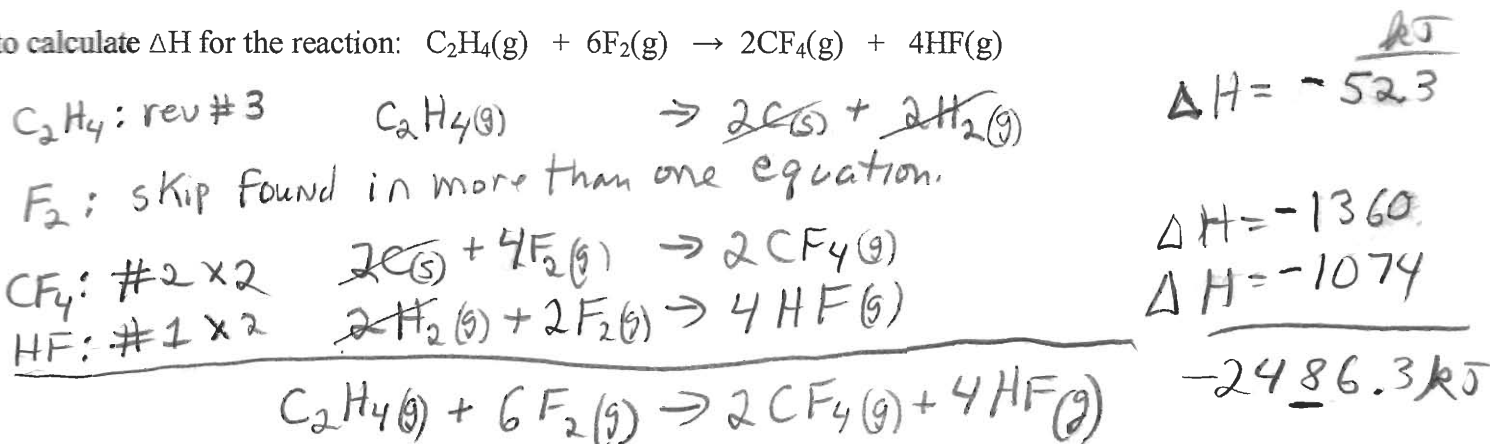 to calculate ΔH for the reaction: C₂H₄(g) + 6F₂(g) → 2CF₄(g) + 4HF(g)
kJ
C₂H₄: rev #3 C₂H₄(g) → 2C(s) + 2H₂(g) ΔH = -52.3
F₂: skip found in more than one equation.
CF₄: #2 x2 2C(s) + 4F₂(g) → 2CF₄(g) ΔH = -1360
HF: #1 x2 2H₂(g) + 2F₂(g) → 4HF(g) ΔH = -1074
C₂H₄(g) + 6F₂(g) → 2CF₄(g) + 4HF(g) -2486.3 kJ